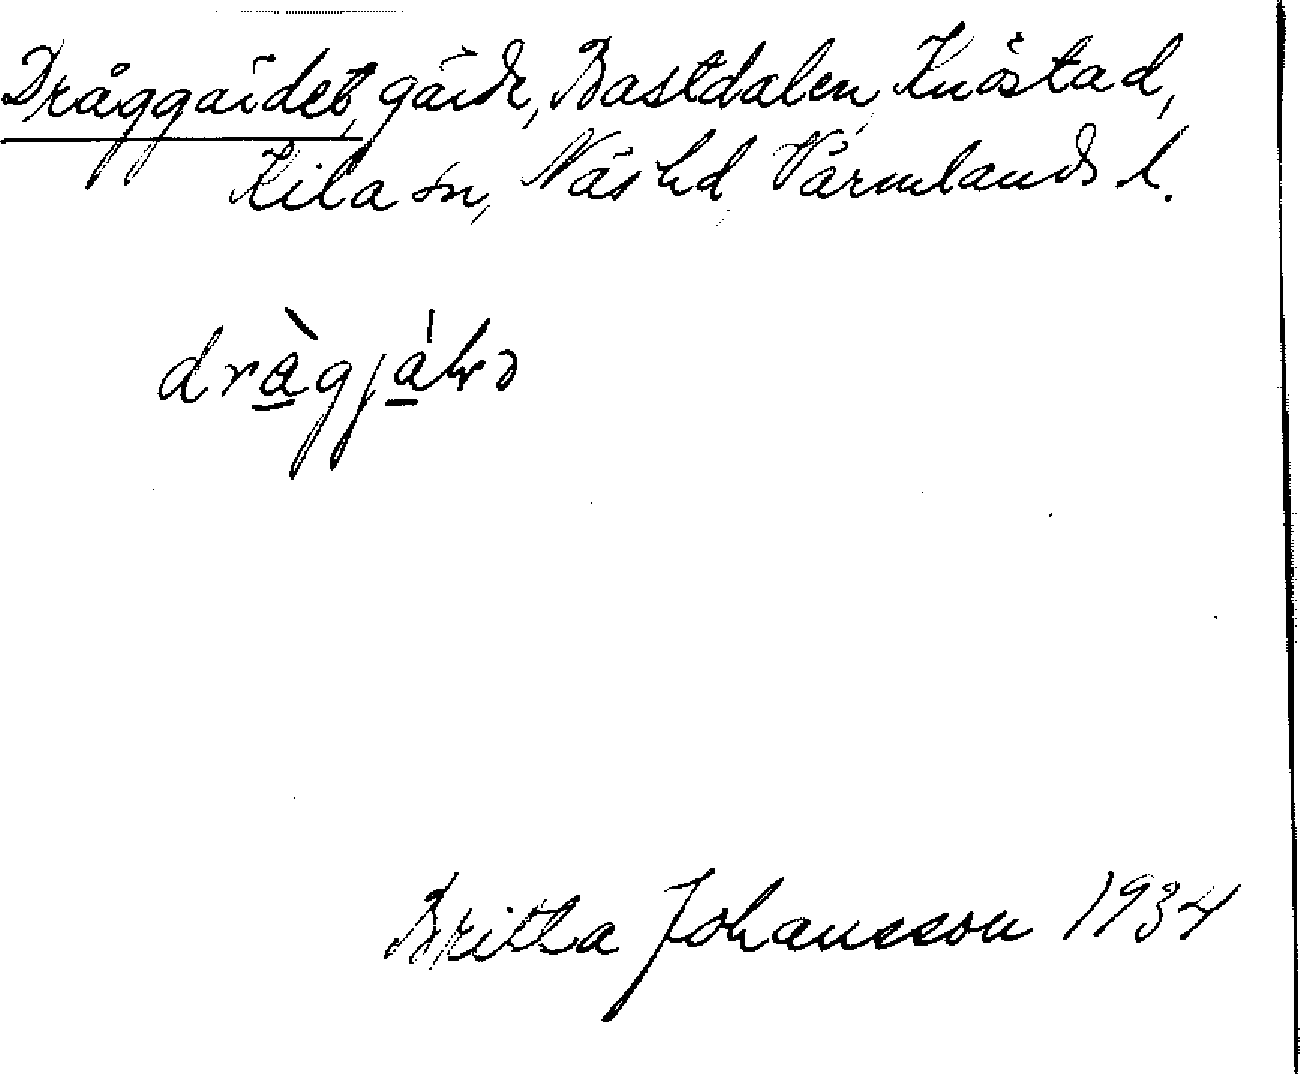 Dråggärdet, gärde, Bastdalen, Knöstad,
Kila sn, Näs hd, Värmlands l.
Britta Johansson 1934